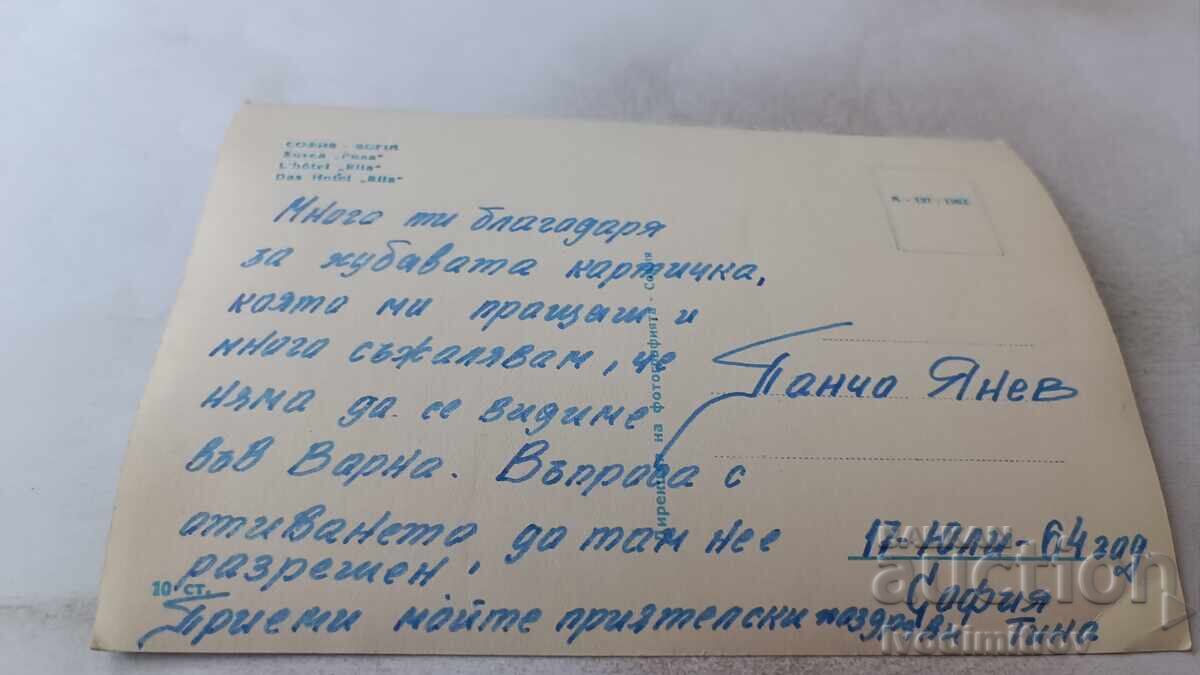 СОФИЯ - SOFIA
Хотел „Рила"
L'hôtel „Rila"
Das Hotel „Rila"
Много ти благодаря
за хубавата картичка,
която ми пращыш и
много съжалявам, че
няма да се видиме
във Варна. Въпроса с
отиването до там нее
разрешен.
Приеми мойте приятелски поздрави Тина
10 ст.
на фотографията - София
Панчо Янев
17-Юли-64 год
София
BALKAN
auction
ivodimitrov